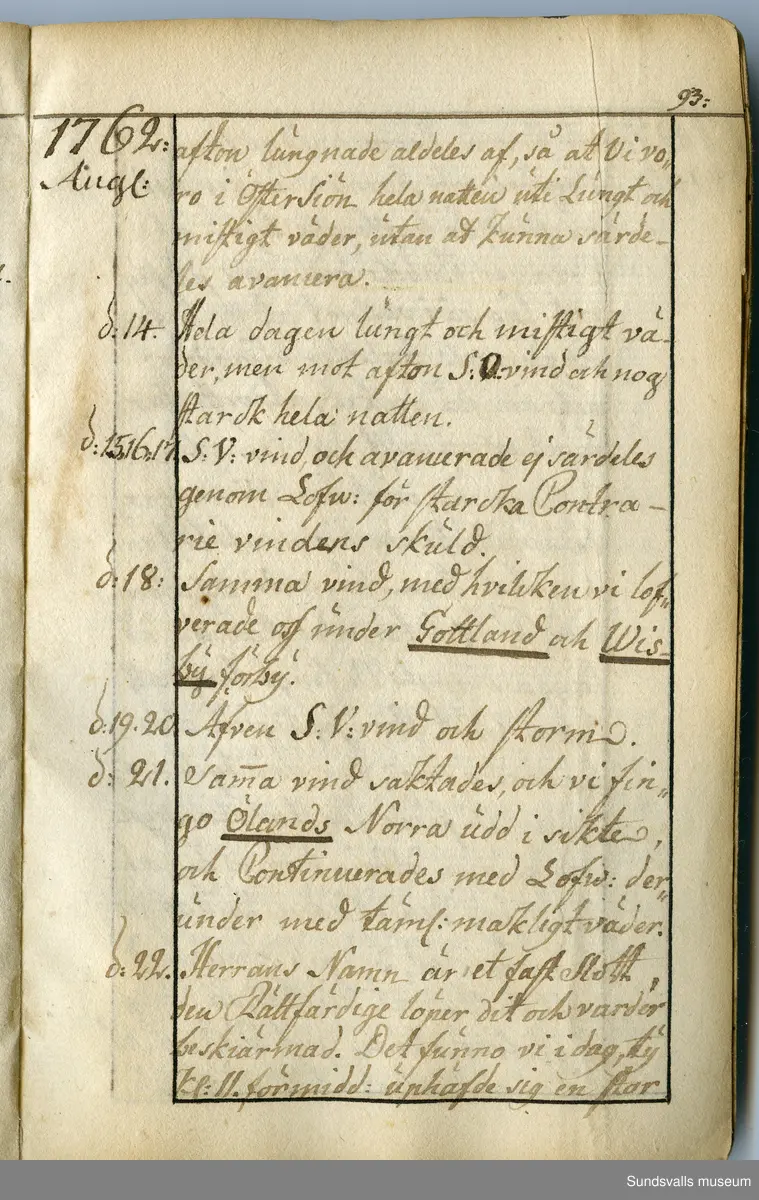 93:
1762: afton lungnade aldeles af, så at Vi vo„
Augl: ro i Östersiön hela natten uti Lungt och
mistigt väder, utan at kunna särde-
les avancera.
d: 14. Hela dagen lungt och mistigt vä-
der, men mot afton S:O. vind och nog
starck hela natten.
d: 15.16.17. S: V: vind, och avancerade ej särdeles
genom Lofw: för starcka Contra-
rie vindens skuld.
d: 18: Samma vind, med hvilcken vi lof„
verade oss under Gottland och Wis-
by förby.
d. 19. 20 Äfven S: V: vind och storm.
d: 21. Sam̄a vind saktades, och vi fin„
go Ölands Norra udd i sikte,
och Continuerades med Lofw: der„
under med täml: makligt väder.
d: 22. Herrans Namn är et fast Slott,
den Rättfärdige löper dit och varder
beskiärmad. Det funno vi i dag, ty
Kl: 11. förmidd: uphäfde sig en star
Sundsvalls museum